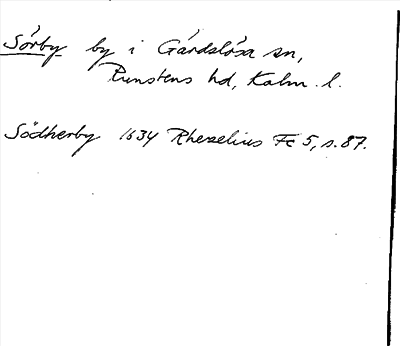 Sörby by i Gärdslösa sn,
Runstens hd, Kalm. l.
Södherby 1634 Rhezelius Fc 5, s. 87.